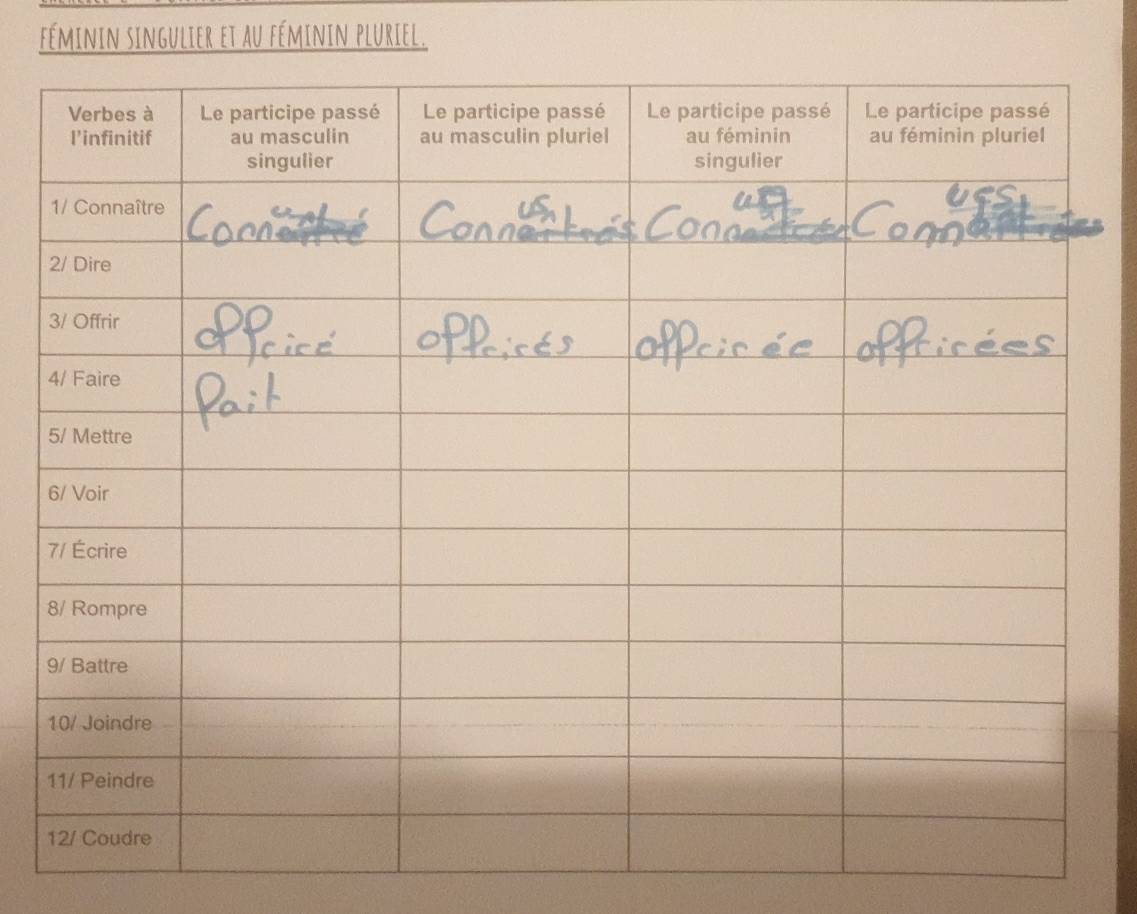 FÉMININ SINGULIER ET AU FÉMININ PLURIEL.
Verbes à l'infinitif Le participe passé au masculin singulier Le participe passé au masculin pluriel Le participe passé au féminin singulier Le participe passé au féminin pluriel
1/ Connaître Connu Connus Connue Connues
2/ Dire
3/ Offrir offriré offrirés offrirée offrirées
4/ Faire fait
5/ Mettre
6/ Voir
7/ Écrire
8/ Rompre
9/ Battre
10/ Joindre
11/ Peindre
12/ Coudre